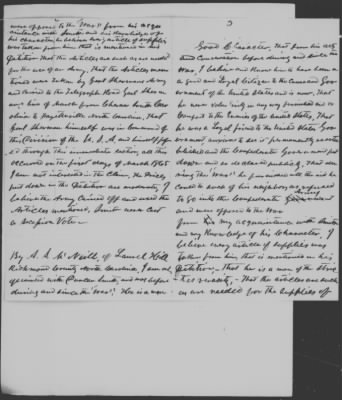 were opposed to the War from his acqu
aintance with Smith and his Knowledge of
his character, he believes every article of supplies
was taken from him that is mentioned in his
Petition that the Articles are such as are needed
for the use of an army, that the Articles men
tioned were taken by Genl Shermans Army
and carried to the Telegraph Road Genl Sherm
ans line of march from Cheraw South Caro
olina to Fayetteville North Carolina, that
Genl Sherman himself was in command of
this Division of the U.S.A and himself pass
ed through this immediate section, all this
occured on the first days of March 1865
I am not interested in the Claim, the Prices
put down in the Petition are moderate, I
believe the Army carried off and used the
Articles mentioned, Smith never cast
a secession Vote
By A. S. McNeill, of Laurel Hill
Richmond County North Carolina, I am ac
quainted with Duncan Smith, and was before
during and since the War; He is a man
3
Good Character, that from his acts
and Conversation before during and since the
War, I believe and Know him to have been
a good and Loyal Citizen to the
Government of the United States and is now, that
he never voluntarily in any way furnished aid or
Comfort to the Enemies of the United States, that
he was a Loyal friend to the United States Gov
ernment, anxious to see it permanently re esta
blished and the Confederate Government put
down and so declared publicly, that dur
ing the War he persuaded all the aid he
could to such of his neighbors as refused
to go into the Confederate Service
and were opposed to the War
from his my acquaintance with Smith
and my Knowledge of his Character, I
believe every article of supplies was
taken from him, that is mentioned in his
Petition, that he is a man of
veracity, that the articles are such
as are needed for the supplies of